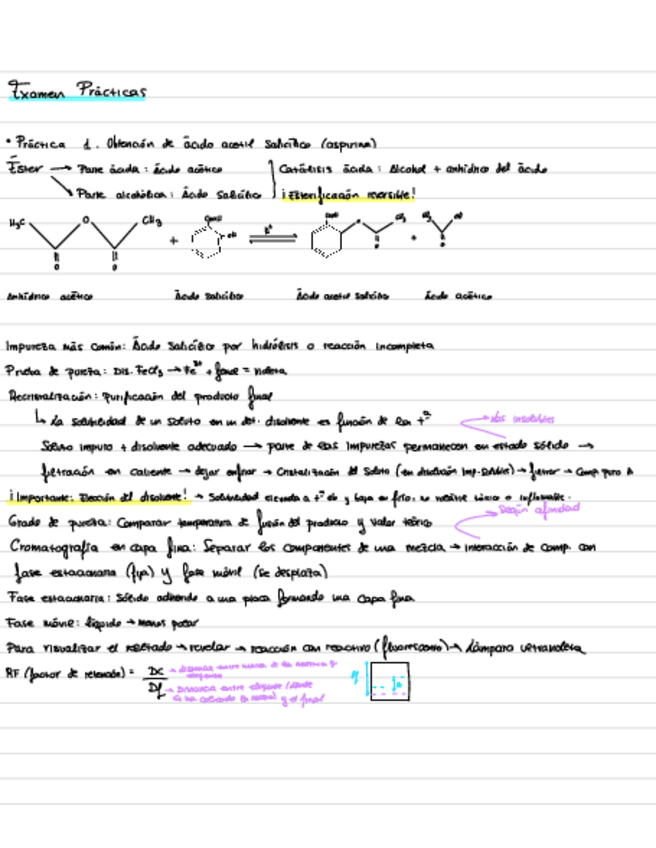 Examen Prácticas
• Práctica 1. Obtención de ácido acetil salicílico (aspirina)
Éster → Parte ácida: ácido acético
Catálisis ácida: Alcohol + anhídrido del ácido
Parte alcohólica: Ácido Salicílico
¡Esterificación reversible!
H₃C O CH₃ + OH H⁺ O CH₃ +
O O
Anhídrido acético Ácido salicílico Ácido acetil salicílico Ácido acético
Impureza más común: Ácido Salicílico por hidrólisis o reacción incompleta
Prueba de pureza: Dis. FeCl₃ → Fe³⁺ + fenol = violeta
Recristalización: purificación del producto final
↳ La solubilidad de un soluto en un det. disolvente es función de la tª
→ las insolubles
Soluto impuro + disolvente adecuado → parte de las impurezas permanecen en estado sólido →
filtración en caliente → dejar enfriar → Cristalización del Soluto (en disolución imp. solubles) → filtrar → Comp. puro
¡Importante: Elección del disolvente! → Solubilidad elevada a tª eb y baja en frío, no tóxico o inflamable.
→ Según afinidad
Grado de pureza: Comparar temperatura de fusión del producto y valor teórico
Cromatografía en capa fina: Separar los componentes de una mezcla → interacción de comp. con
fase estacionaria (fija) y fase móvil (se desplaza)
Fase estacionaria: Sólido adherido a una placa formando una capa fina
Fase móvil: líquido → menos polar
Para visualizar el resultado → revelar → reacción con reactivo (fluorescente) → lámpara ultravioleta
RF (factor de retención) = Dc → distancia entre de la muestra y
Df → Distancia entre
se ha colocado la muestra) y el final